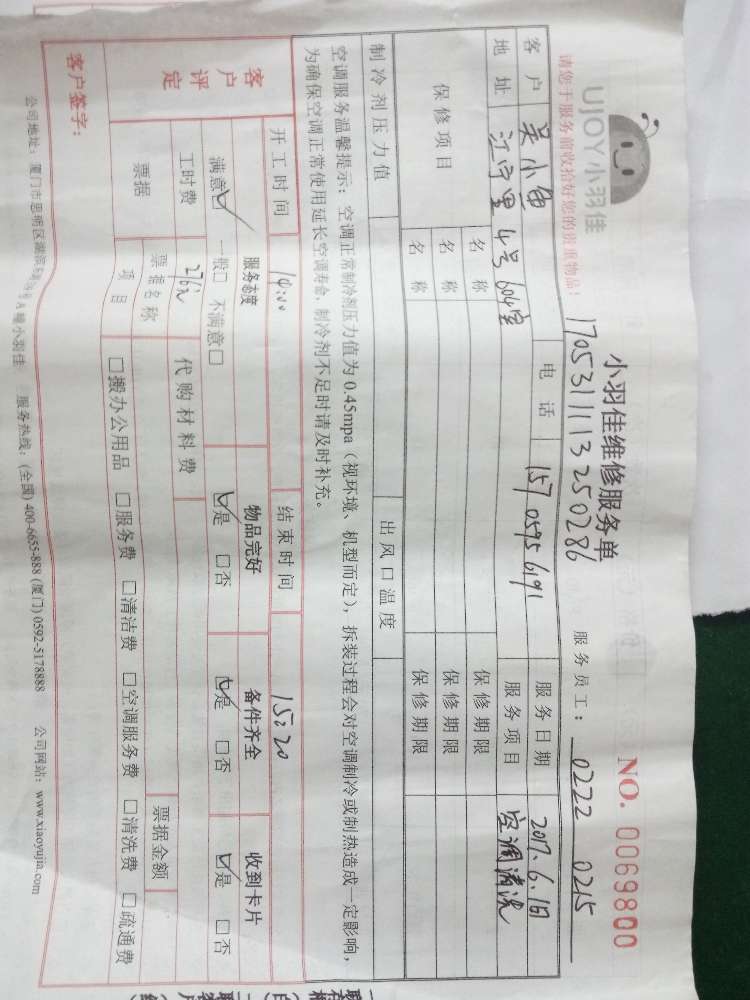 UJOY小羽佳
小羽佳维修服务单
NO. 0069800
请您于服务前收拾好您的贵重物品!
17053111113250286
服务员工: 0222 0215
客户 吴小鱼 电话 15705956191 服务日期 2017.6.1日
地址 江宁里4号604室 服务项目 空调清洗
保修项目 名称 保修期限
名称 保修期限
名称 保修期限
制冷剂压力值 出风口温度
空调服务温馨提示: 空调正常制冷剂压力值为 0.45mpa (视环境、机型而定), 拆装过程会对空调制冷或制热造成一定影响,
为确保空调正常使用延长空调寿命, 制冷剂不足时请及时补充。
开工时间 14:00 结束时间 15:20
客户评定
服务态度 物品完好 备件齐全 收到卡片
满意☑ 一般□ 不满意□ ☑是 □否 ☑是 □否 ☑是 □否
工时费 276元 代购材料费
票据 票据名称 票据金额
项目 □搬办公用品 □服务费 □清洁费 □空调服务费 □清洗费 □疏通费
客户签字:
公司地址: 厦门市思明区 小羽佳 服务热线: (全国) 400-6655-888 (厦门) 0592-5178888 公司网站: www.xiaoyujia.com